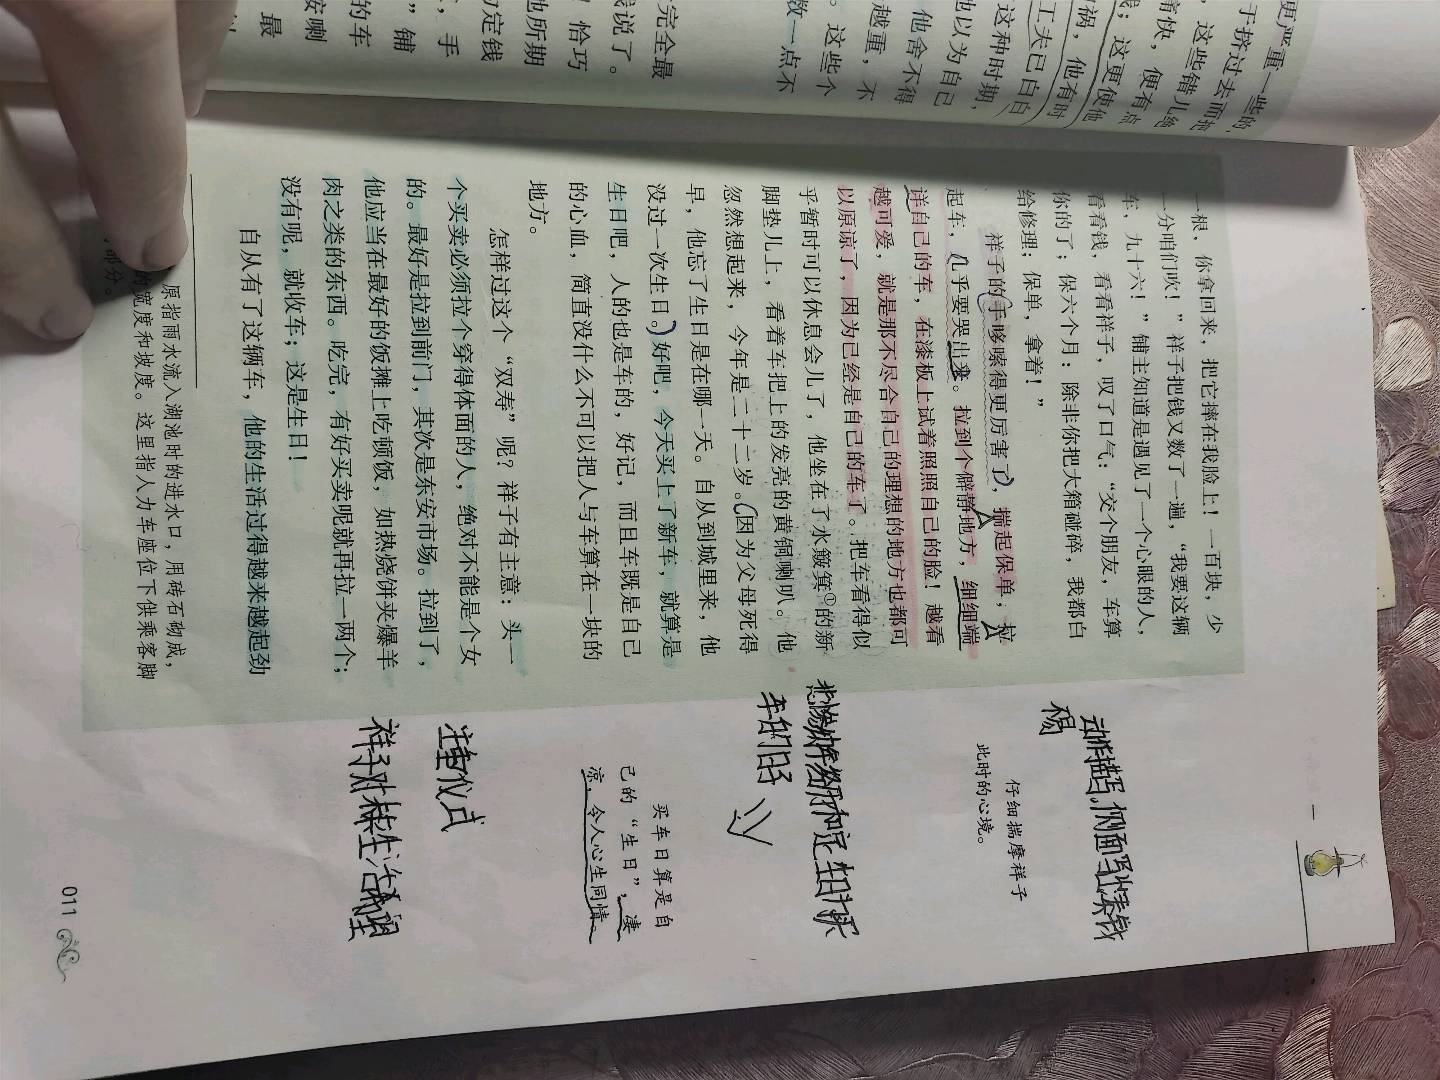 更严重一些的,
于挤过去而把
，这些错儿绝
痛快，便有点
；这更使他
祸，他有时
工夫已白白
这种时期，
他以为自己
他舍不得
越重，不
。这些个
数一点不
完全最
说了。
！恰巧
他所期
定钱
，手
”铺
的车
按喇
最
一根，你拿回来，把它摔在我脸上！一百块，少
一分咱们吹！”祥子把钱又数了一遍，“我要这辆
车，九十六！”铺主知道是遇见了一个心眼的人，
看看钱，看看祥子，叹了口气：“交个朋友，车算
你的了；保六个月：除非你把大箱碰碎，我都白
给修理；保单，拿着！”
祥子的手哆嗦得更厉害了，揣起保单，拉
起车，几乎要哭出来。拉到个僻静地方，细细端
详自己的车，在漆板上试着照照自己的脸！越看
越可爱，就是那不尽合自己的理想的地方也都可
以原谅了，因为已经是自己的车了。把车看得似
乎暂时可以休息会儿了，他坐在了水簸箕①的新
脚垫儿上，看着车把上的发亮的黄铜喇叭。他
忽然想起来，今年是二十二岁。因为父母死得
早，他忘了生日是在哪一天。自从到城里来，他
没过一次生日。好吧，今天买上了新车，就算是
生日吧，人的也是车的，好记，而且车既是自己
的心血，简直没什么不可以把人与车算在一块的
地方。
怎样过这个“双寿”呢？祥子有主意：头一
个买卖必须拉个穿得体面的人，绝对不能是个女
的。最好是拉到前门，其次是东安市场。拉到了，
他应当在最好的饭摊上吃顿饭，如热烧饼夹爆羊
肉之类的东西。吃完，有好买卖呢就再拉一两个；
没有呢，就收车；这是生日！
自从有了这辆车，他的生活过得越来越起劲
原指雨水流入湖池时的进水口，用砖石砌成，
的宽度和坡度。这里指人力车座位下供乘客脚
部分。
动作描写，侧面写
仔细揣摩祥子
此时的心境。
车的日子
买车日算是自
己的“生日”，凄
凉，令人心生同情。
注重仪式
祥子对未来生活的希望
011